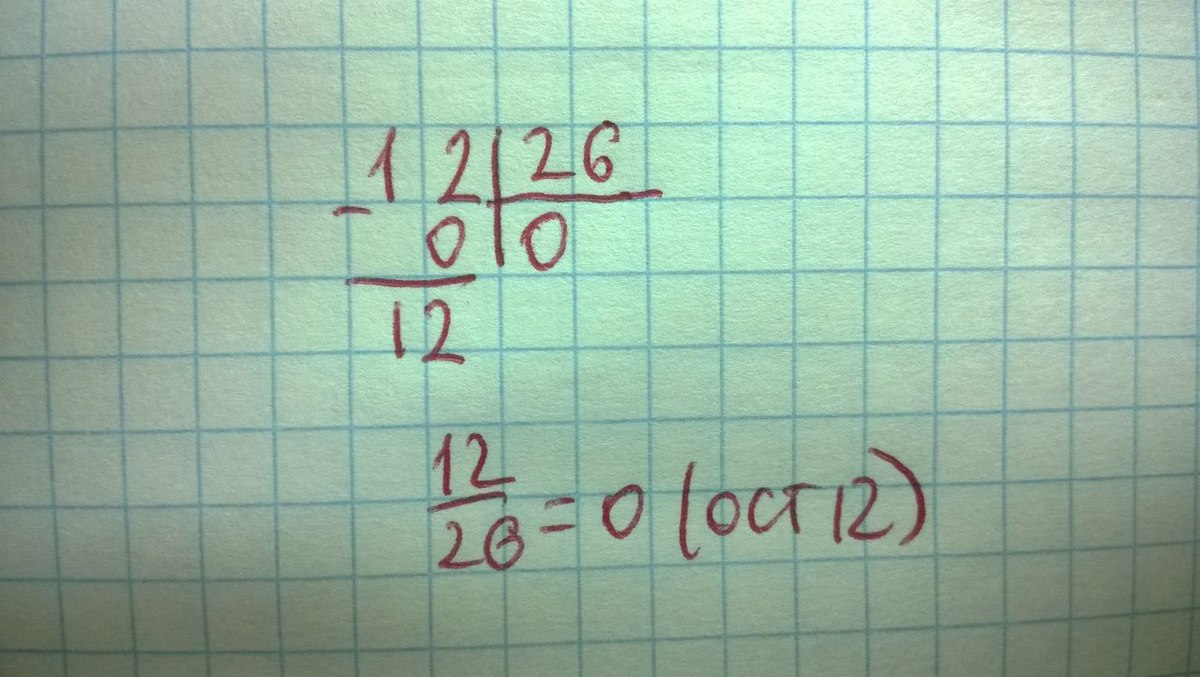 - 12 | 26
0 | 0
12
12
26 = 0 (ост 12)